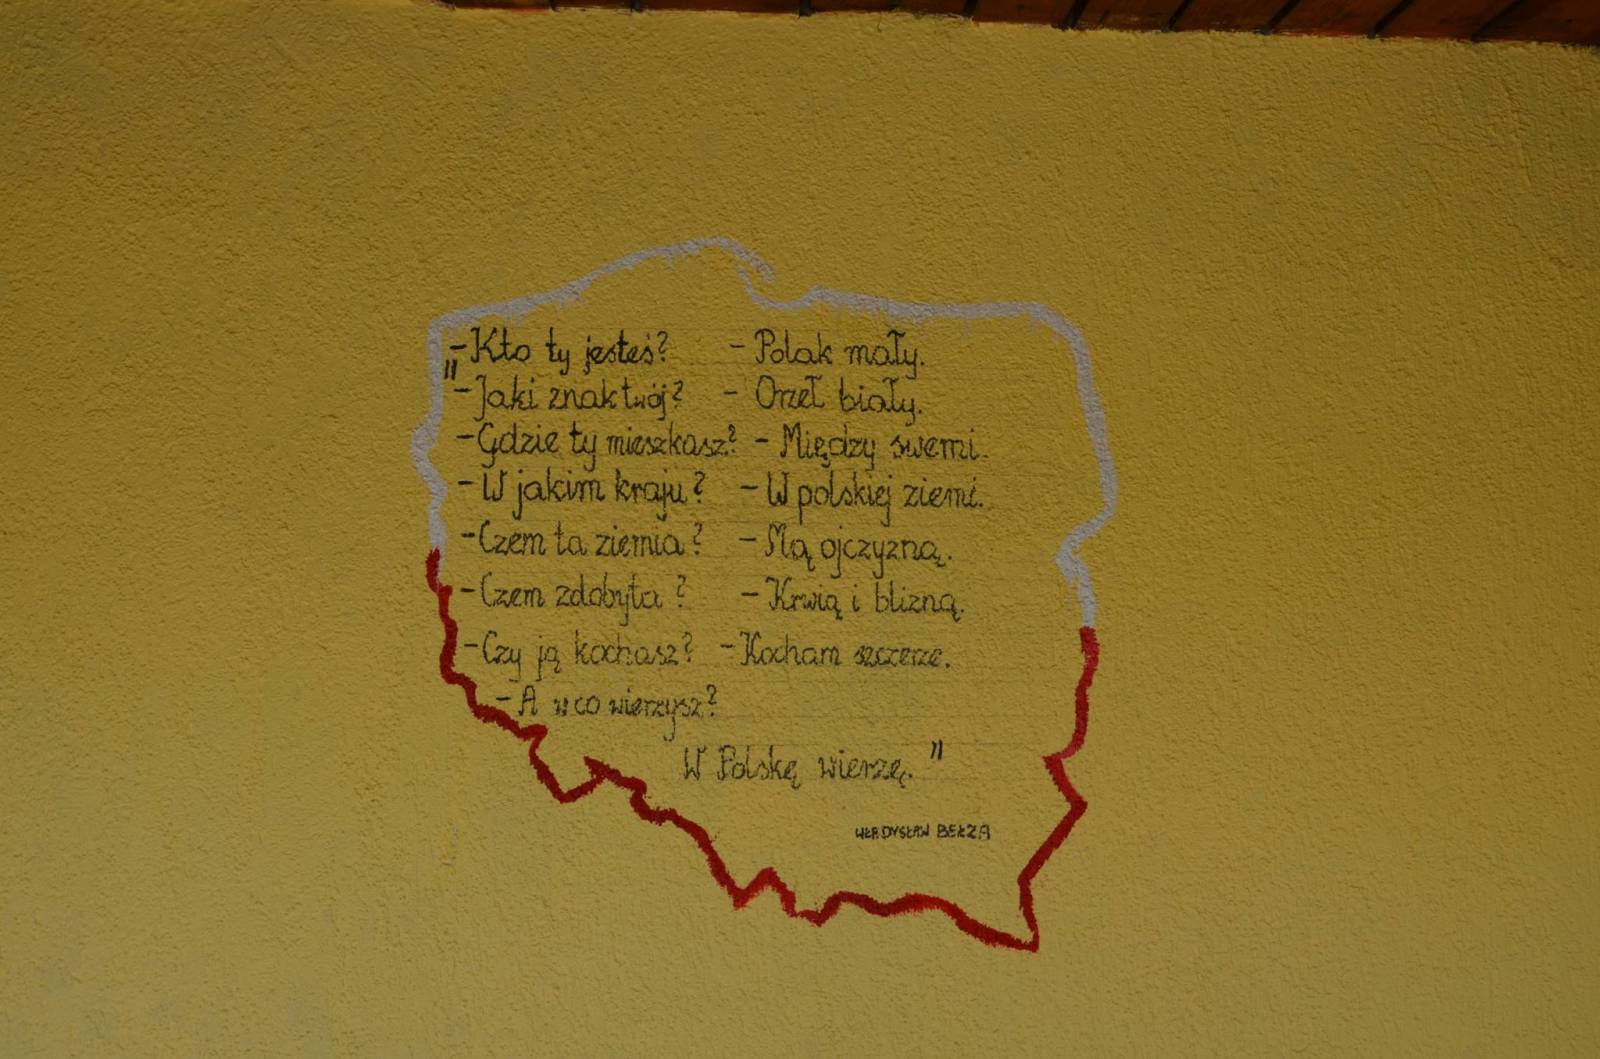 „- Kto ty jesteś? - Polak mały.
- Jaki znak twój? - Orzeł biały.
- Gdzie ty mieszkasz? - Między swemi.
- W jakim kraju? - W polskiej ziemi.
- Czem ta ziemia? - Mą ojczyzną.
- Czem zdobyta? - Krwią i blizną.
- Czy ją kochasz? - Kocham szczerze.
- A w co wierzysz?
W Polskę wierzę."
WŁADYSŁAW BEŁZA